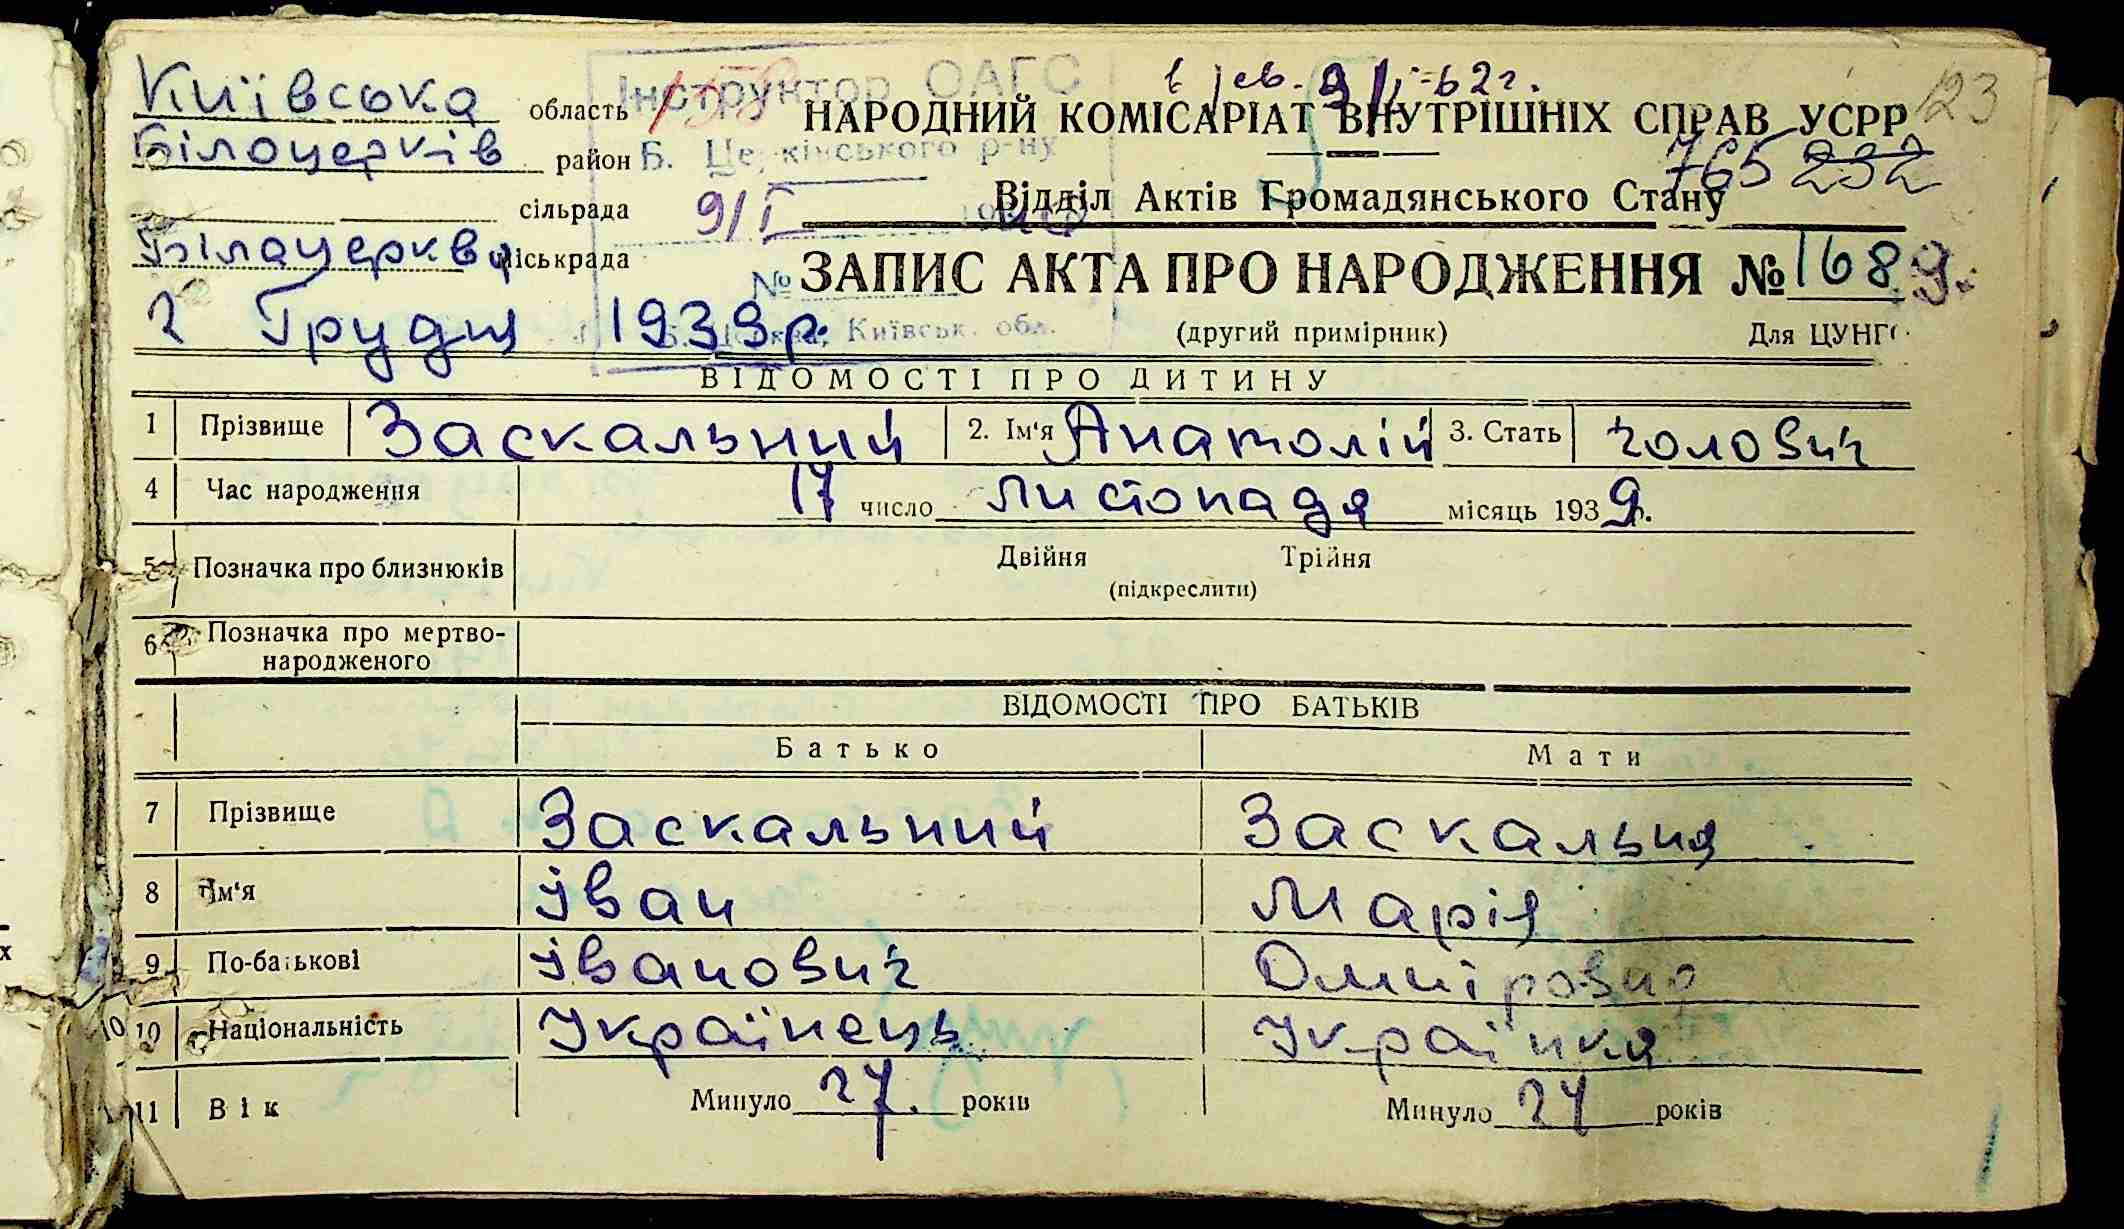 Київська область
Інструктор ОАГС
9/I-62г.
НАРОДНИЙ КОМІСАРІАТ ВНУТРІШНІХ СПРАВ УСРР
123
Білоцерків район
Б. Церківського р-ну
765 232
сільрада
9/I
Відділ Актів Громадянського Стану
Білоцеркв міськрада
№
ЗАПИС АКТА ПРО НАРОДЖЕННЯ № 1689
2 Грудня 1939 р.
Київськ. обл.
(другий примірник)
Для ЦУНГО
ВІДОМОСТІ ПРО ДИТИНУ
1 Прізвище Заскальний 2. Ім'я Анатолій 3. Стать чолович
4 Час народження 17 число Листопада місяць 1939 р.
5 Позначка про близнюків Двійня Трійня
(підкреслити)
6 Позначка про мертво-
народженого
ВІДОМОСТІ ПРО БАТЬКІВ
Батько Мати
7 Прізвище Заскальний Заскальня
8 Ім'я Іван Марія
9 По-батькові Іванович
10 10 Національність Українець Українка
11 Вік Минуло 27 років Минуло 24 років